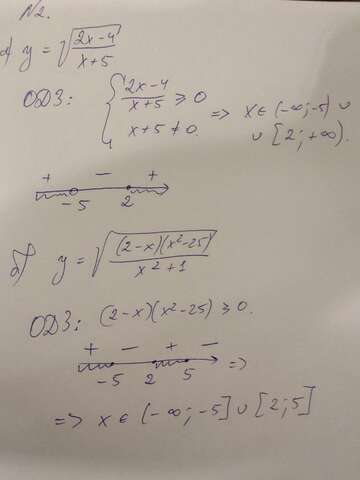 N2.
а) y = √((2x-4)/(x+5))
ОДЗ: { (2x-4)/(x+5) ≥ 0
x+5 ≠ 0.
=> x ∈ (-∞; -5) ∪
∪ [2; +∞).
+ - +
-5 2
б) y = √((2-x)(x²-25)/(x²+1))
ОДЗ: (2-x)(x²-25) ≥ 0.
+ - + -
-5 2 5 =>
=> x ∈ (-∞; -5] ∪ [2; 5]